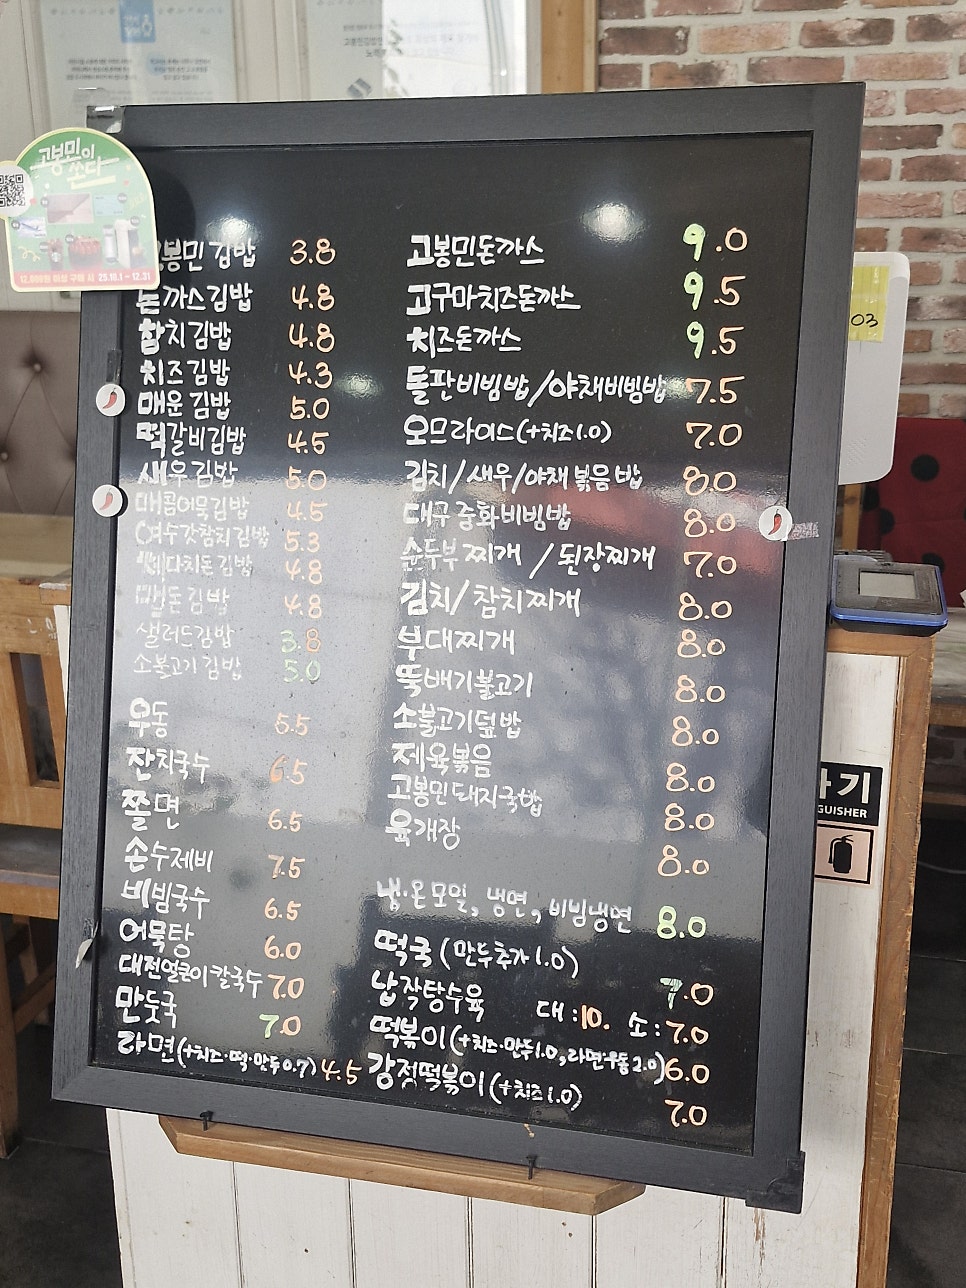 고봉민이
쏜다
12,000원 이상 구매 시 25.10.1 ~ 12.31
봉민김밥 3.8
돈까스김밥 4.8
참치김밥 4.8
치즈김밥 4.3
매운김밥 5.0
떡갈비김밥 4.5
새우김밥 5.0
매콤어묵김밥 4.5
여수갓참치김밥 5.3
다치돈김밥 4.8
매돈김밥 4.8
샐러드김밥 3.8
소불고기김밥 5.0
우동 5.5
잔치국수 6.5
쫄면 6.5
손수제비 7.5
비빔국수 6.5
어묵탕 6.0
대전얼큰이칼국수 7.0
만둣국 7.0
라면(+치즈·떡·만두0.7) 4.5
고봉민돈까스 9.0
고구마치즈돈까스 9.5
치즈돈까스 9.5
돌판비빔밥/야채비빔밥 7.5
오므라이스(+치즈1.0) 7.0
김치/새우/야채볶음밥 8.0
대구중화비빔밥 8.0
순두부찌개 / 된장찌개 7.0
김치/참치찌개 8.0
부대찌개 8.0
뚝배기불고기 8.0
소불고기덮밥 8.0
제육볶음 8.0
고봉민돼지국밥 8.0
육개장 8.0
냉·온모밀, 냉면, 비빔냉면 8.0
떡국(만두추가1.0) 7.0
납작탕수육 대:10. 소:7.0
떡볶이(+치즈·만두1.0, 라면·우동2.0) 6.0
강정떡볶이(+치즈1.0) 7.0
03
기
GUISHER